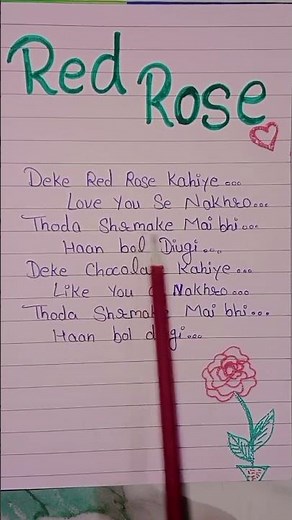 Red Rose
Deke Red Rose Kahiye...
Love You Se Nakhro...
Thoda Sharmake Mai bhi...
Haan bol Dugi...
Deke Kahiye...
Like You Nakhro...
Thoda Mai bhi...
Haan bol